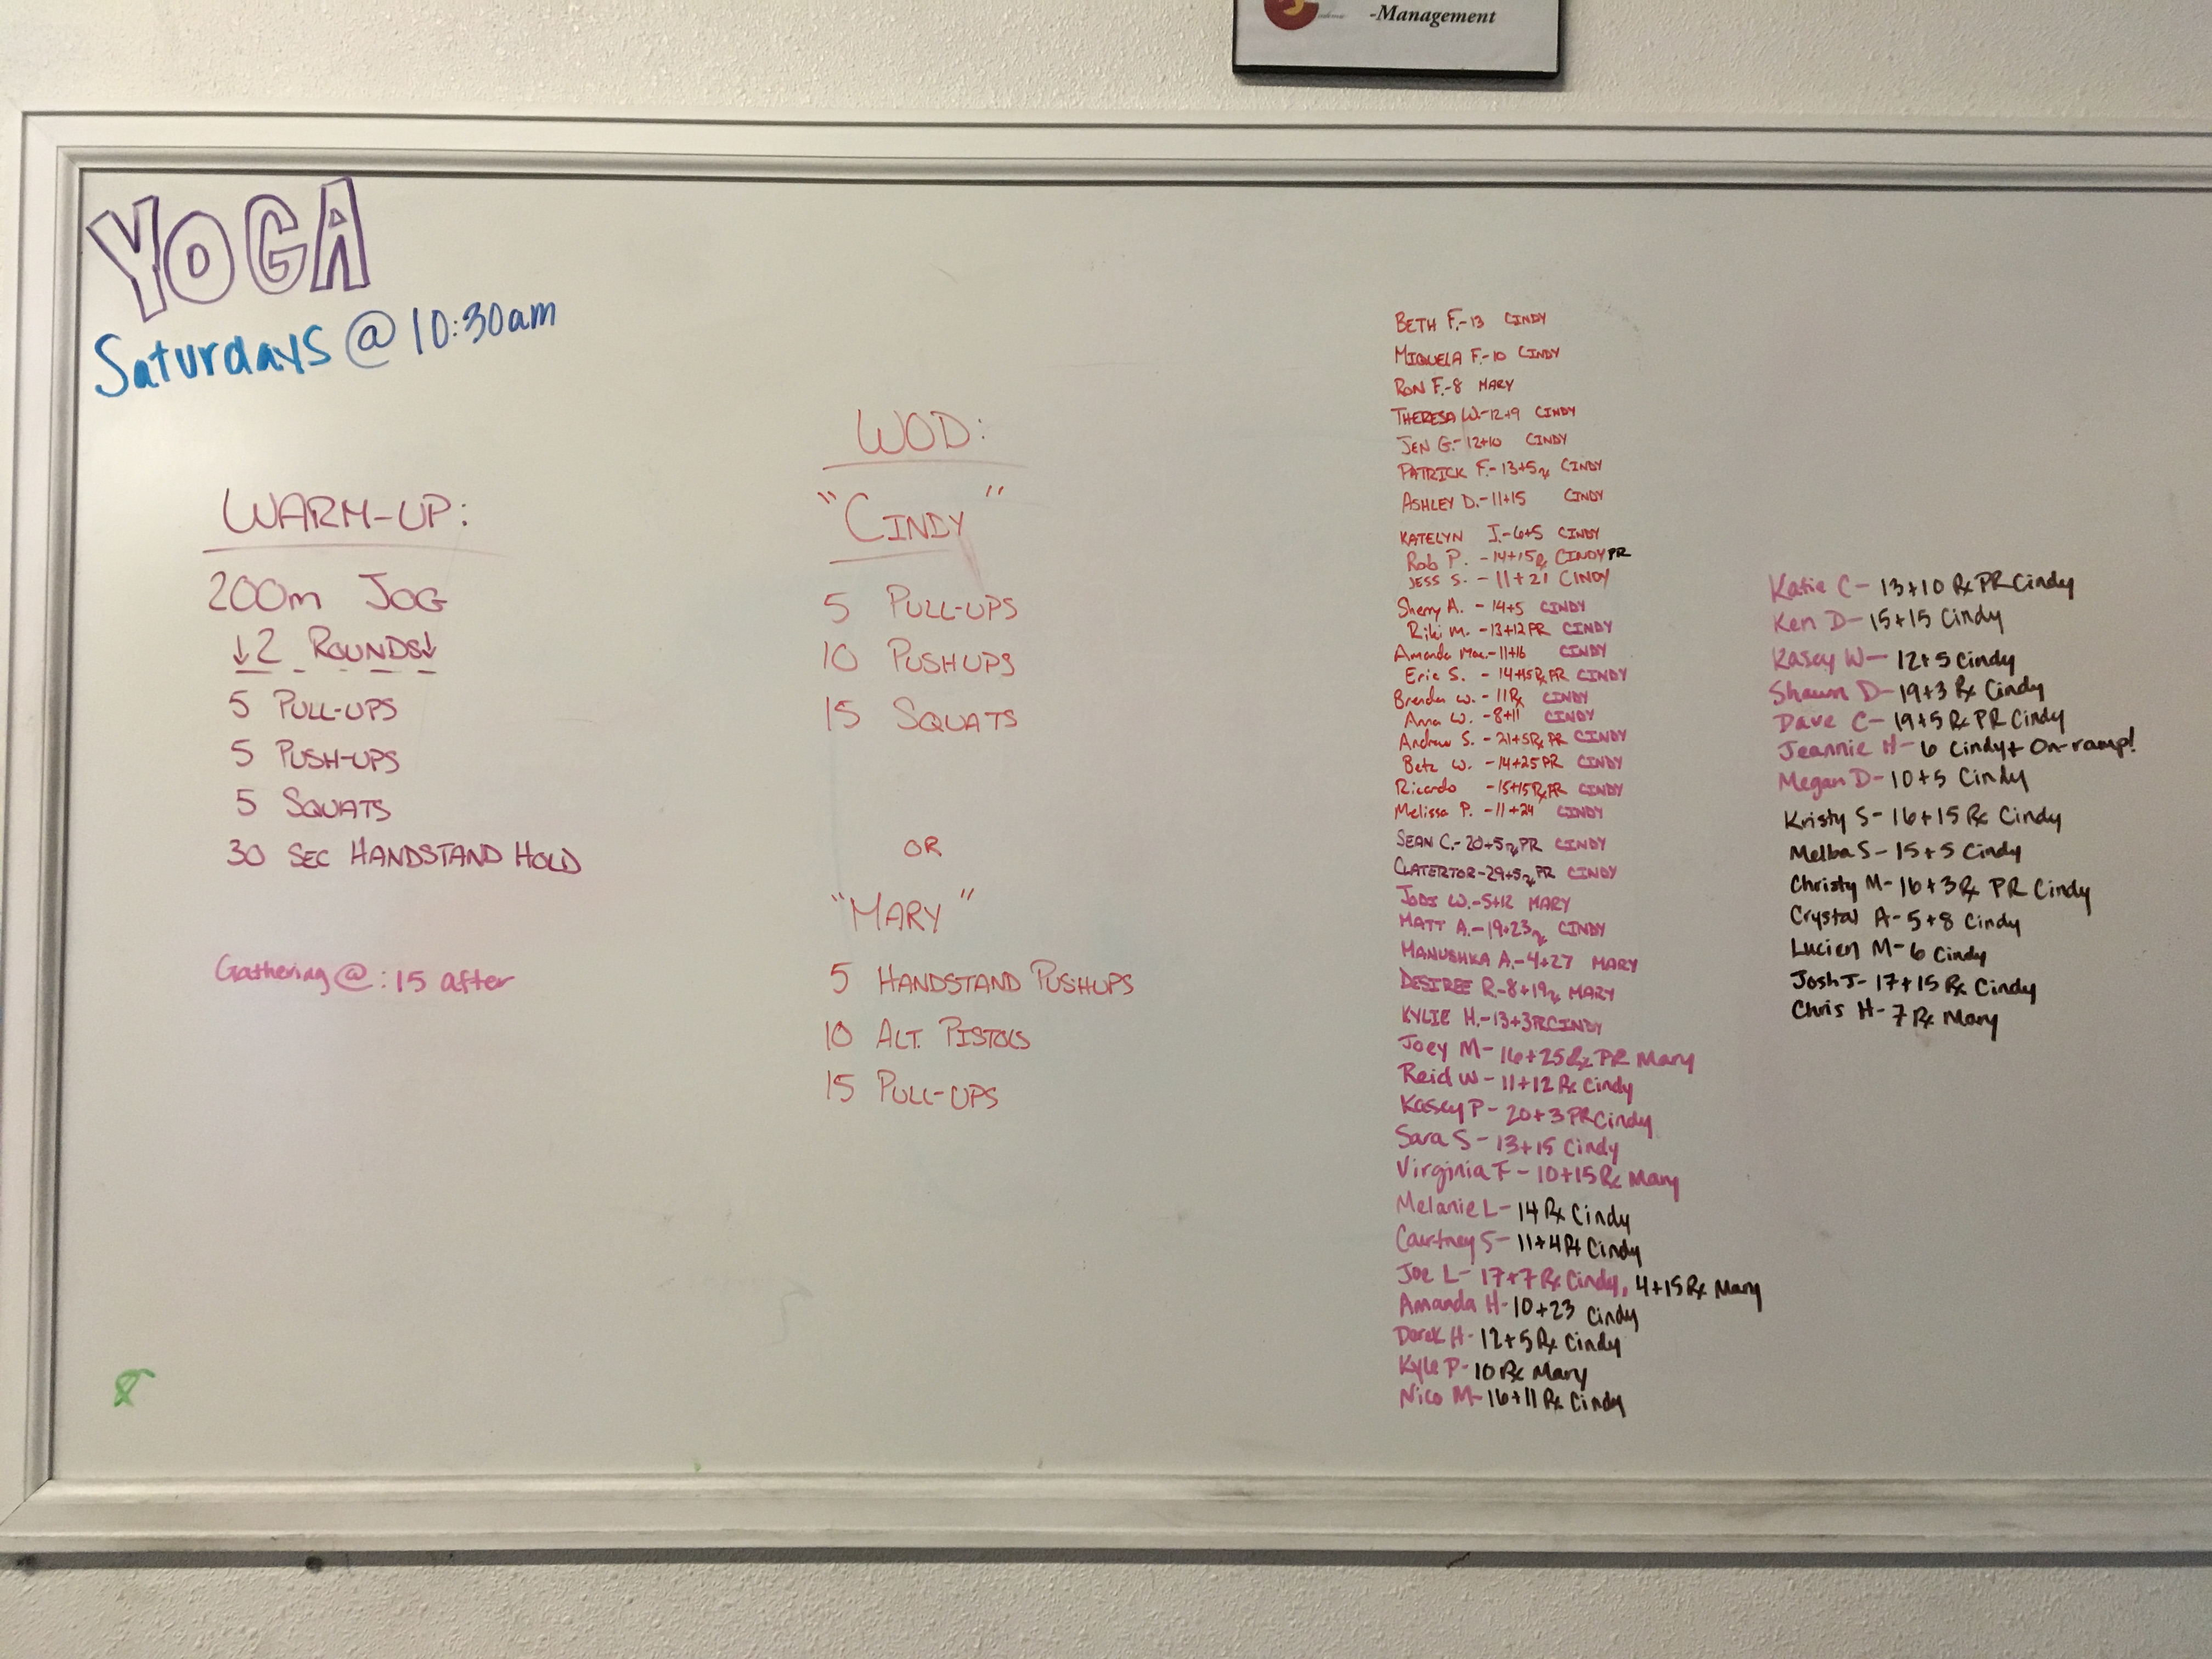 -Management
YOGA
Saturdays @ 10:30am
WARM-UP:
200m JOG
↓2 ROUNDS↓
5 PULL-UPS
5 PUSH-UPS
5 SQUATS
30 SEC HANDSTAND HOLD
Gathering @ :15 after
WOD:
"CINDY"
5 PULL-UPS
10 PUSHUPS
15 SQUATS
OR
"MARY"
5 HANDSTAND PUSHUPS
10 ALT. PISTOLS
15 PULL-UPS
BETH F.-13 CINDY
MIQUELA F.-10 CINDY
RON F.-8 MARY
THERESA W.-12+9 CINDY
JEN G.-12+10 CINDY
PATRICK F.-13+5 Rx CINDY
ASHLEY D.-11+15 CINDY
KATELYN J.-6+5 CINDY
Rob P. -14+15 Rx CINDY PR
JESS S. -11+21 CINDY
Sherry A. -14+5 CINDY
Riki M. -13+12 PR CINDY
Amanda Mac.-11+16 CINDY
Eric S. -14+15 Rx PR CINDY
Brenda W. -11 Rx CINDY
Anna W. -8+11 CINDY
Andrew S. -21+5 Rx PR CINDY
Betz W. -14+25 PR CINDY
Ricardo -15+15 Rx PR CINDY
Melissa P. -11+24 CINDY
SEAN C.-20+5 Rx PR CINDY
CLATERTOR-29+5 Rx PR CINDY
JODI W.-5+12 MARY
MATT A.-19+23 Rx CINDY
MANUSHKA A.-4+27 MARY
DESIREE R.-8+19 Rx MARY
KYLIE H.-13+3 CINDY
Joey M-16+25 Rx PR Mary
Reid W-11+12 Rx Cindy
Kasey P-20+3 PR Cindy
Sara S-13+15 Cindy
Virginia F-10+15 Rx Mary
Melanie L-14 Rx Cindy
Courtney S-11+4 Rx Cindy
Joe L-17+7 Rx Cindy, 4+15 Rx Mary
Amanda H-10+23 Cindy
Derek H-12+5 Rx Cindy
Kyle P-10 Rx Mary
Nico M-16+11 Rx Cindy
Katie C-13+10 Rx PR Cindy
Ken D-15+15 Cindy
Kasey W-12+5 Cindy
Shawn D-19+3 Rx Cindy
Dave C-19+5 Rx PR Cindy
Jeannie H-6 Cindy + On-ramp!
Megan D-10+5 Cindy
Kristy S-16+15 Rx Cindy
Melba S-15+5 Cindy
Christy M-16+3 Rx PR Cindy
Crystal A-5+8 Cindy
Lucien M-6 Cindy
Josh J-17+15 Rx Cindy
Chris H-7 Rx Mary